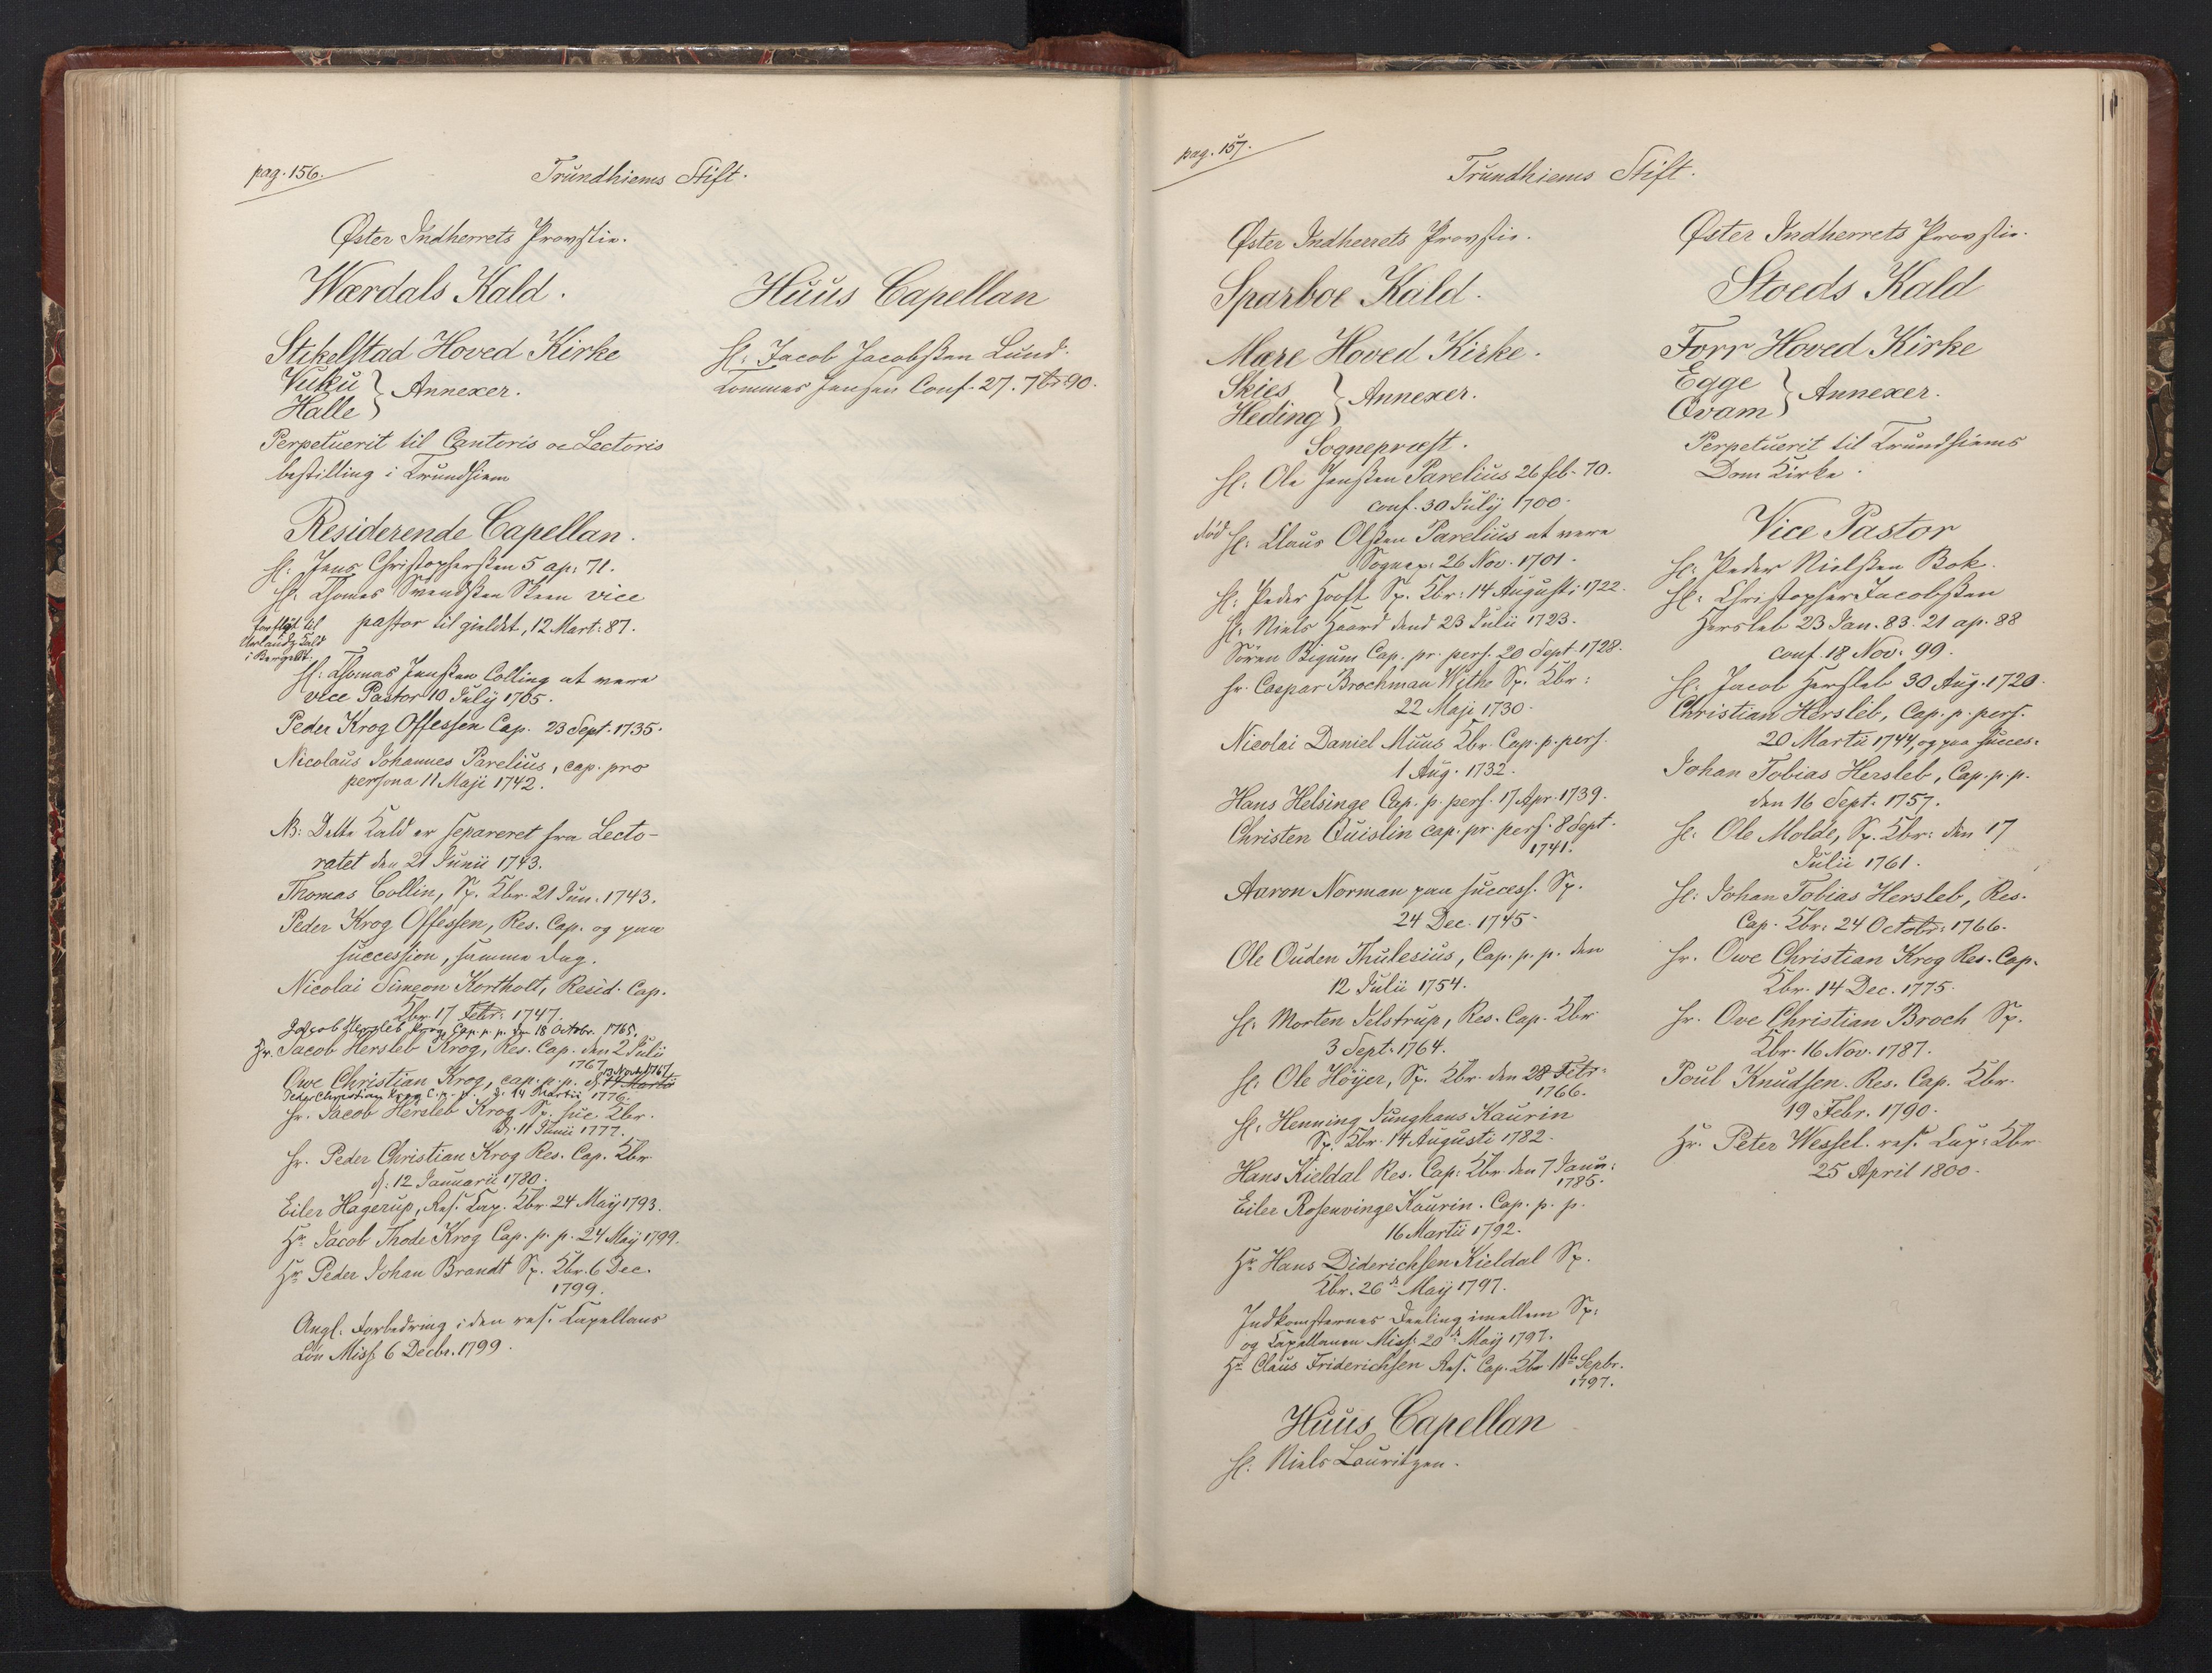 pag. 156.
Trundhiems Stift.
Øster Indherrets Provstie.
Wærdals Kald.
Stikelstad Hoved Kirke
Vuku
Halle } Annexer.
Perpetuerit til Cantoris oc Lectoris
bestilling i Trundhiem
Residerende Capellan.
Hr: Jens Christophersken 5 ap: 71.
Hr: Thomes Svendsken Steen vice
pastor til gieldet, 12 Mart: 87.
forflyt til
Urlandz Kald
i Bergest.
Hr: Thomas Jensken Colling at være
vice Pastor 10 July 1705.
Peder Krog Offessen Cap. 23 Sept. 1735.
Nicolaus Johannes Parelius, cap. pro
persona 11 Maji 1742.
NB: Dette Kald er separeret fra Lecto-
ratet den 21 Junii 1743.
Thomas Collin, Sp. Kbr. 21 Jun. 1743.
Peder Krog Offessen, Res. Cap. og paa
succession, samme dag.
Nicolai Simeon Kortholt, Resid. Cap.
Kbr. 17 Febr: 1747.
Jacob Hersleb Krog, Cap. p. p. den 18 Octobr. 1765.
Hr. Jacob Hersleb Krog, Res. Cap. den 2 Julii
1767.
Owe Christian Krog, cap. p. p. d. 14 Martii
13 Novbr 1767
Peder Christian Krog C. p. p. d. 14 Martii 1776.
Hr. Jacob Hersleb Krog Sp. suc. Kbr.
d. 11 Junii 1777.
Hr. Peder Christian Krog Res. Cap. Kbr.
d: 12 Januarii 1780.
Eiler Hagerup, Res. Cap. Kbr. 24 Maÿ 1793.
Hr. Jacob Thode Krog Cap. p. p. 24 Maÿ 1799.
Hr. Peder Johan Brandt Sp. Kbr. 6 Dec.
1799.
Angl. Forbedring i den res. Capellans
Løn Miss. 6 Decbr. 1799.
Huus Capellan
Hr: Jacob Jacobsken Lund.
Tommes Jensen Conf. 27. 7br. 90.
pag. 157.
Trundhiems Stift.
Øster Indherrets Provstie.
Sparboe Kald.
Mære Hoved Kirke.
Skies
Heding } Annexer.
Sognepræst.
Hr: Ole Jensken Parelius 26 feb. 70.
conf. 30 July 1700.
død Hr: Claus Olsken Parelius at være
Sognep: 26 Nov. 1701.
Hr: Peder Hooft Sp. Kbr: 14 Augusti 1722.
Hr: Niels Haard dend 23 Julii 1723.
Søren Bigum Cap. pr. pers. 20 Sept. 1728.
Hr. Caspar Brochman Withe Sp. Kbr:
22 Maji 1730.
Nicolai Daniel Muus Kbr. Cap. p. pers.
1 Aug. 1732.
Hans Helsinge Cap. p. pers. 17 Apr. 1739.
Christen Quislin cap. pr. pers. 8 Sept.
1741.
Aaron Norman paa success. Sp.
24 Dec. 1745.
Ole Ouden Thulesius, Cap. p. p. den
12 Julii 1754.
Hr: Morten Jelstrup, Res. Cap. Kbr.
3 Sept. 1764.
Hr: Ole Höyer, Sp. Kbr. den 28 Febr.
1766.
Hr: Henning Junghans Kaurin
Sp. Kbr. 14 Augusti 1782.
Hans Kieldal Res. Cap: Kbr. den 7 Janu:
1785.
Eiler Rosenvinge Kaurin. Cap. p. p.
16 Martii 1792.
Hr. Hans Diderichsen Kieldal Sp.
Kbr. 26de Maÿ 1797.
Indkomsternes Deeling imellem Sp:
og Capellanen Miss: 20de Maÿ 1797.
Hr. Claus Friderichsen Res. Cap. Kbr. 18de Septbr.
1797.
Huus Capellan
Hr: Niels Lauritzen.
Øster Indherrets Provstie.
Stoeds Kald
Forr Hoved Kirke
Egge
Qvam } Annexer.
Perpetuerit til Trundhiems
Dom Kirke.
Vice Pastor
Hr: Peder Nielsken Bok.
Hr: Christopher Jacobsken
Hersleb 23 Jan. 83. 21 ap. 88
conf. 18 Nov: 99.
Hr: Jacob Hersleb 30 Aug. 1720.
Christian Hersleb, Cap. p. pers.
20 Martii 1744, og paa succes:
Johan Tobias Hersleb, Cap. p. p.
den 16 Sept. 1757.
Hr: Ole Molde, Sp. Kbr: den 17
Julii 1761.
Hr: Johan Tobias Hersleb, Res.
Cap. Kbr: 24 Octobr: 1766.
Hr. Owe Christian Krog Res. Cap.
Kbr. 14 Dec. 1775.
Hr. Ove Christian Broch Sp.
Kbr. 16 Nov. 1787.
Poul Knudsen. Res. Cap. Kbr.
19 Febr. 1790.
Hr. Peter Wessel. res. Cap: Kbr.
25 April 1800.